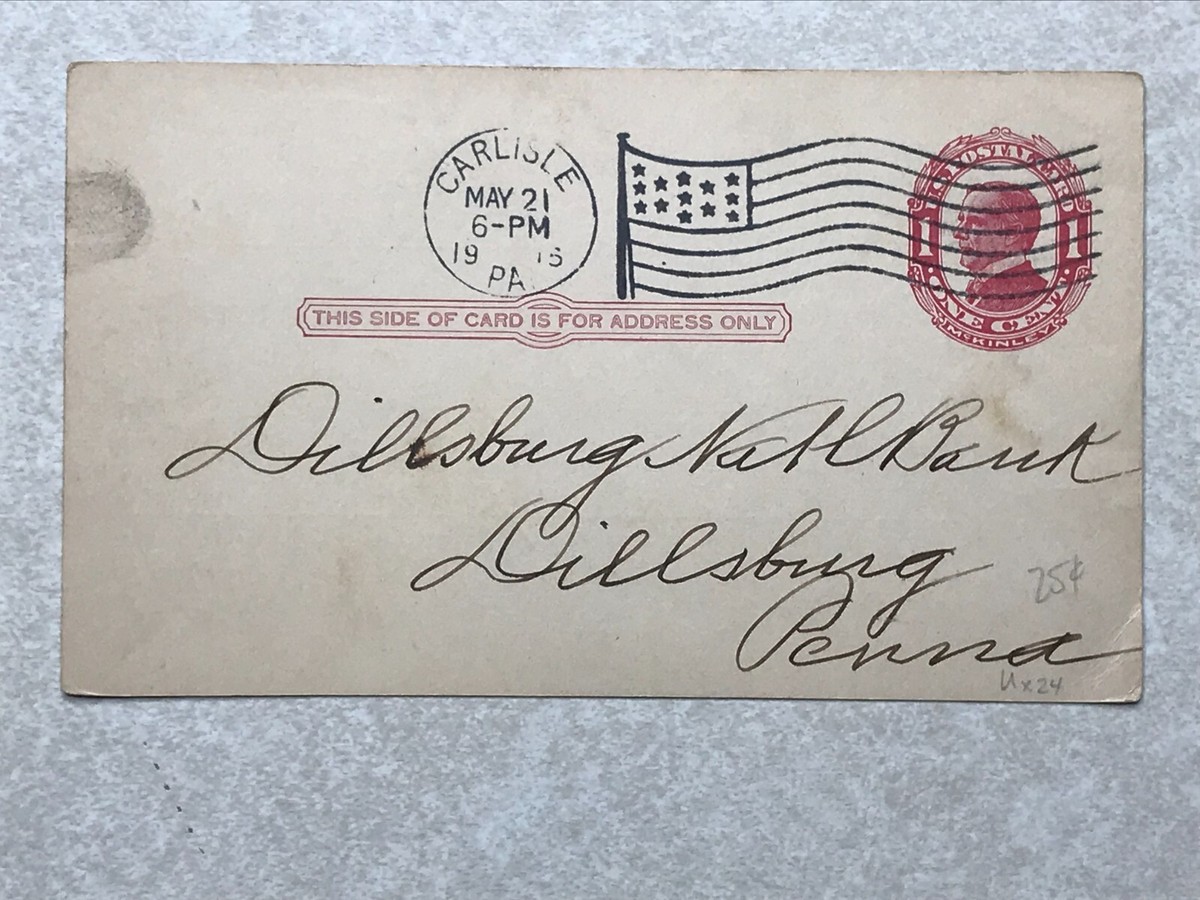 CARLISLE
MAY 21
6-PM
19 15
PA.
POSTAL CARD
1 1
ONE CENT
McKINLEY
THIS SIDE OF CARD IS FOR ADDRESS ONLY
Dillsburg Natl Bank
Dillsburg
25¢
Penna
Ux24